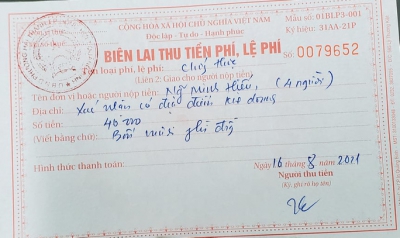 CỘNG HÒA XÃ HỘI CHỦ NGHĨA VIỆT NAM
Độc lập - Tự do - Hạnh phúc
Mẫu số: 01BLP3-001
Ký hiệu: 31AA-21P
BIÊN LAI THU TIỀN PHÍ, LỆ PHÍ
Số: 0079652
Tên loại phí, lệ phí: Chứng thực
(Liên 2: Giao cho người nộp tiền)
Tên đơn vị hoặc người nộp tiền: Ngô Minh Hiếu, (4 người)
Địa chỉ: Xác nhận có đặc điểm
Số tiền: 40 000
(Viết bằng chữ) Bốn mươi
Hình thức thanh toán:
Ngày 16 tháng 8 2021
Người thu tiền
(Ký, ghi rõ họ tên)